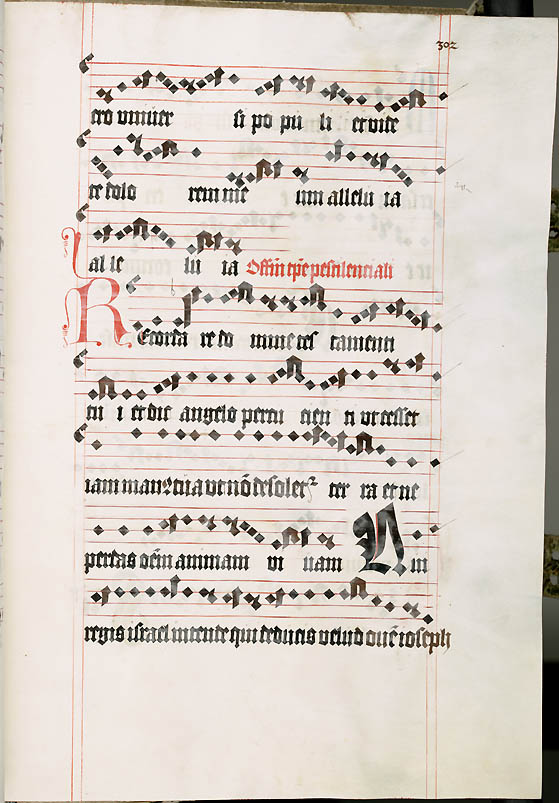 302
ero vniuer si po pu li et vide
te dolo rem me um allelu ia
al le lu ia Offm tpe pestilenciali
REcorda re do mine tes tamenti
tu i et dic angelo percu cien ti vt cesset
iam manus tua vt nō desolet ter ra et ne
perdas oēm animam vi uam Qui
regis israel intende qui deducis velud ouē ioseph